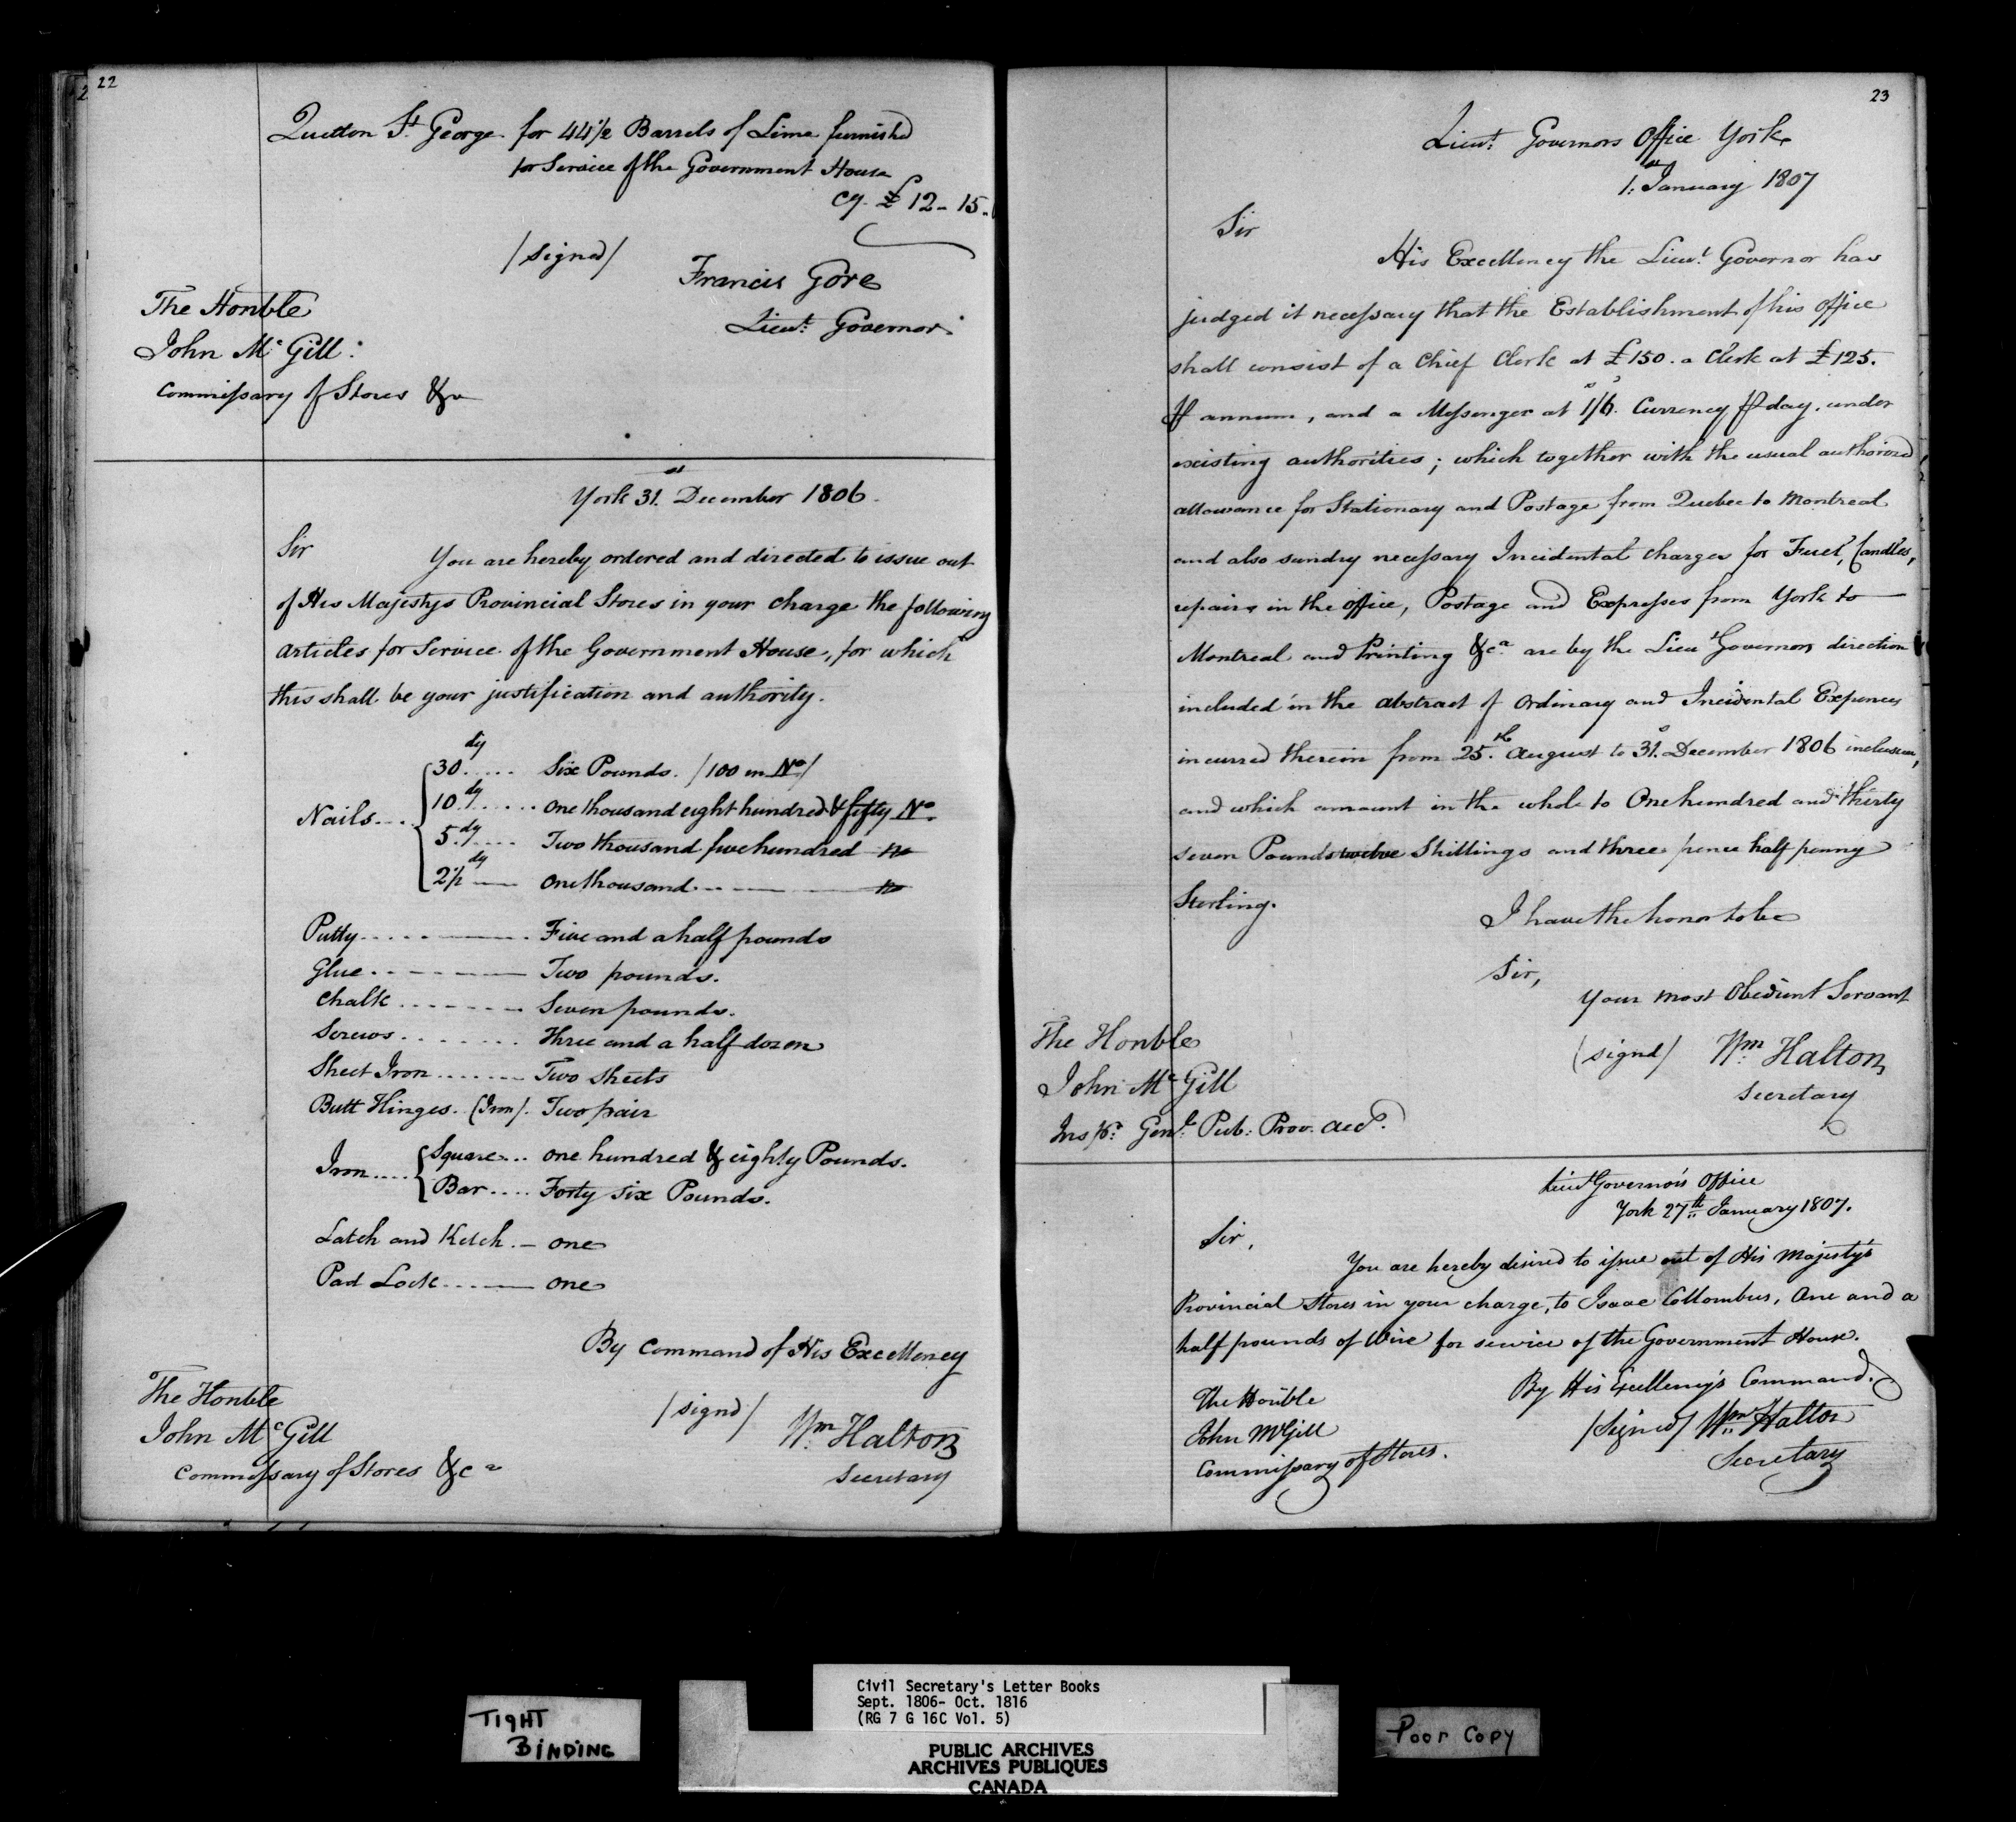 22
Quetton St George for 44 1/2 Barrels of Lime furnishd
for Service of the Government House
Cy. £ 12 - 15.
/Signed/
Francis Gore
Lieut. Governor.
The Honble
John Mc Gill.
Commissary of Stores &a
York 31st December 1806.
Sir You are hereby ordered and directed to issue out
of His Majestys Provincial Stores in your charge the following
articles for Service of the Government House, for which
this shall be your justification and authority.
Nails
30dy Six Pounds. /100 in No/
10dy One thousand eight hundred & fifty No.
5dy Two thousand five hundred no
2 1/2dy One thousand no
Putty Five and a half pounds
Glue Two pounds.
Chalk Seven pounds.
Screws Three and a half dozen
Sheet Iron Two sheets
Butt Hinges. (Iron). Two pair
Iron
Square one hundred & eighty Pounds.
Bar Forty six Pounds.
Latch and Ketch. one
Pad Lock one
By Command of His Excellency
/signd/ Wm Halton
Secretary
The Honble
John Mc Gill
Commissary of Stores &ca
23
Lieut. Governors Office York
1st January 1807
Sir
His Excellency the Lieut Governor has
judged it necessary that the Establishment of his Office
shall consist of a Chief Clerk at £150. a Clerk at £125.
P annum, and a Messenger at 1s/6. Currency P day, under
existing authorities; which together with the usual authorized
allowance for Stationary and Postage from Quebec to Montreal
and also sundry necessary Incidental charges for Fuel, Candles,
repairs in the office, Postage and Expresses from York to
Montreal and Printing &ca. are by the Lieut Governors direction
included in the abstract of Ordinary and Incidental Expences
incurred therein from 25th August to 31st December 1806 inclusive,
and which amount in the whole to One hundred and thirty
seven Pounds twelve Shillings and three pence half penny
Sterling.
I have the honor to be
Sir,
Your most Obedient Servant
(signd) Wm Halton
Secretary
The Honble
John Mc Gill
Inspr. Genl. Pub: Prov. Acct.
Lieut Governor's Office
York 27th January 1807.
Sir,
You are hereby desired to issue out of His Majesty's
Provincial Stores in your charge, to Isaac Collombus, One and a
half pounds of Wire for service of the Government House.
By His Excellency's Command.
/Signed/ Wm Halton
Secretary
The Honble
John McGill
Commissary of Stores.
TIGHT
BINDING
Civil Secretary's Letter Books
Sept. 1806- Oct. 1816
(RG 7 G 16C Vol. 5)
PUBLIC ARCHIVES
ARCHIVES PUBLIQUES
CANADA
Poor Copy